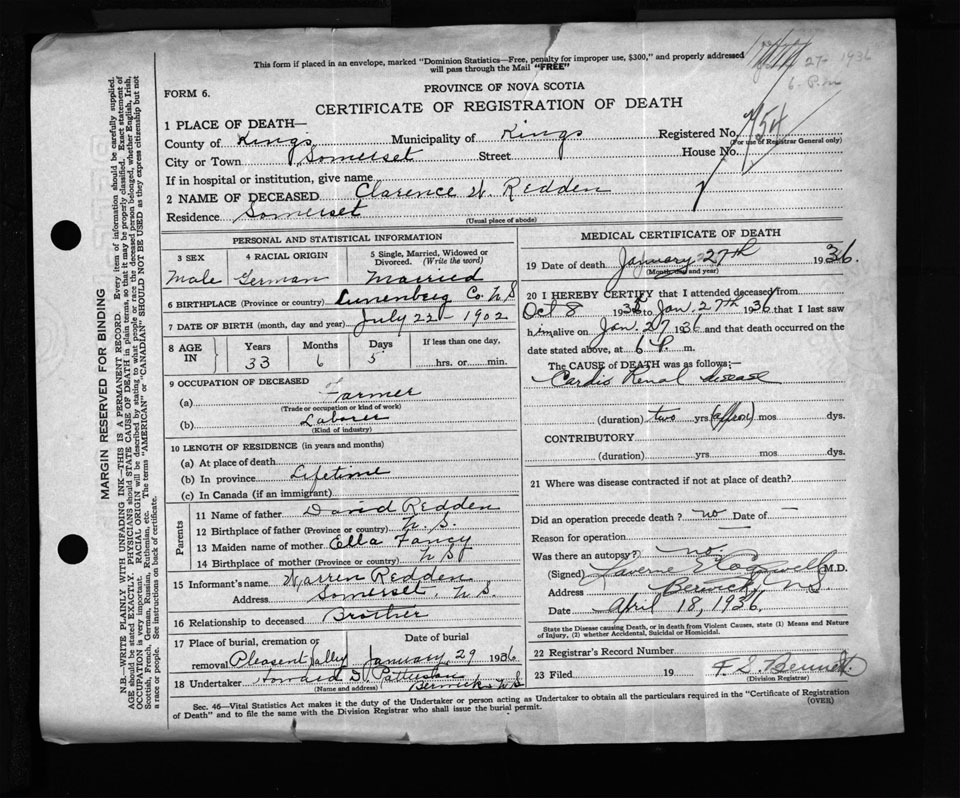 This form if placed in an envelope, marked "Dominion Statistics—Free, penalty for improper use, $300," and properly addressed
will pass through the Mail "FREE"
27 1936
6 P.m
FORM 6.
PROVINCE OF NOVA SCOTIA
CERTIFICATE OF REGISTRATION OF DEATH
1 PLACE OF DEATH—
County of Kings Municipality of Kings Registered No. 754
(For use of Registrar General only)
City or Town Somerset Street House No.
If in hospital or institution, give name
2 NAME OF DECEASED Clarence W. Redden
Residence Somerset
(Usual place of abode)
PERSONAL AND STATISTICAL INFORMATION
3 SEX 4 RACIAL ORIGIN 5 Single, Married, Widowed or Divorced. (Write the word)
Male German Married
6 BIRTHPLACE (Province or country) Lunenberg Co. N S
7 DATE OF BIRTH (month, day and year) July 22 - 1902
8 AGE IN Years Months Days If less than one day,
33 6 5 hrs. or min.
9 OCCUPATION OF DECEASED
(a) Farmer
(Trade or occupation or kind of work)
(b) Laborer
(Kind of industry)
10 LENGTH OF RESIDENCE (in years and months)
(a) At place of death
(b) In province Lifetime
(c) In Canada (if an immigrant)
Parents
11 Name of father David Redden
12 Birthplace of father (Province or country) N. S.
13 Maiden name of mother Ella Fancy
14 Birthplace of mother (Province or country) N S
15 Informant's name Warren Redden
Address Somerset, N.S.
16 Relationship to deceased Brother
17 Place of burial, cremation or removal Date of burial
Pleasent Vally January 29 1936
18 Undertaker Howard D. Patterson
(Name and address) Berwick N.S
MEDICAL CERTIFICATE OF DEATH
19 Date of death January 27th 1936.
(Month, day and year)
20 I HEREBY CERTIFY that I attended deceased from
Oct 8 193 to Jan. 27th 1936 that I last saw
him alive on Jan. 27 1936 and that death occurred on
date stated above, at 6 P. m.
The CAUSE of DEATH was as follows:—
Cardio Renal disease
(duration) two yrs mos dys.
CONTRIBUTORY
(duration) yrs mos dys.
21 Where was disease contracted if not at place of death?
Did an operation precede death? no Date of —
Reason for operation —
Was there an autopsy? no.
(Signed) Laverne M.D.
Address Berwick, N.S.
Date April 18, 1936.
State the Disease causing Death, or in death from Violent Causes, state (1) Means and Nature
of Injury, (2) whether Accidental, Suicidal or Homicidal.
22 Registrar's Record Number
23 Filed 19 F. S. Bennett
(Division Registrar)
Sec. 46—Vital Statistics Act makes it the duty of the Undertaker or person acting as Undertaker to obtain all the particulars required in the "Certificate of Registration
of Death" and to file the same with the Division Registrar who shall issue the burial permit.
(OVER)
MARGIN RESERVED FOR BINDING
N.B.—WRITE PLAINLY WITH UNFADING INK—THIS IS A PERMANENT RECORD. Every item of information should be carefully supplied.
AGE should be stated EXACTLY. PHYSICIANS should STATE CAUSE OF DEATH in plain terms, so that it may be properly classified. Exact statement of
OCCUPATION is very important. RACIAL ORIGIN will be described by stating to what people or race the deceased person belonged, whether English, Irish,
Scottish, French, German, Russian, Ruthenian, etc. The terms "AMERICAN" or "CANADIAN" SHOULD NOT BE USED as they express citizenship but not
a race or people. See instructions on back of certificate.